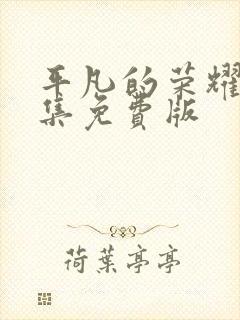 平凡的荣耀
集免費版
荷葉亭亭